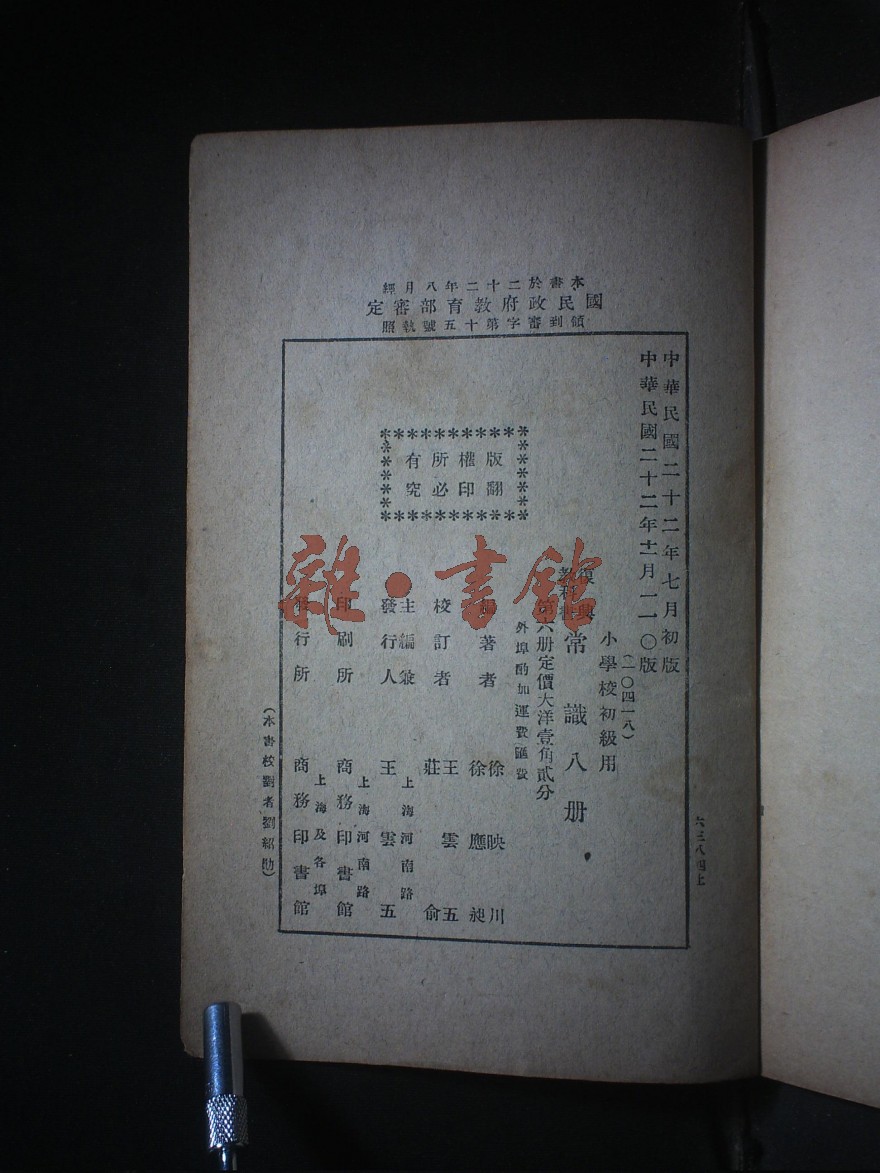 本書於二十二年八月經
國民政府教育部審定
領到審字第十五號執照
中華民國二十二年七月初版
中華民國二十二年十二月一一〇版
(一〇四一八)
小學校初級用
復興
教科書
常識八册
第六册定價大洋壹角貳分
外埠酌加運費匯費
版權所有
翻印必究
編著者
徐映川
徐應昶
校訂者
王雲五
莊俞
主編兼
發行人
上海河南路
王雲五
印刷所
上海河南路
商務印書館
發行所
上海及各埠
商務印書館
(本書校對者劉紹勛)
六三八四上
雜·書館